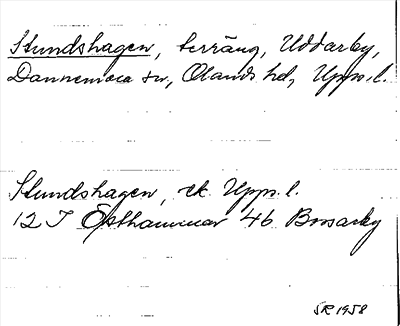 Stundshagen, terräng, Uddarby,
Dannemora sn, Olands hd, Upps. l.
Stundshagen, ek. Upps. l.
12 I Östhammar 46 Bossarby
SR 1958